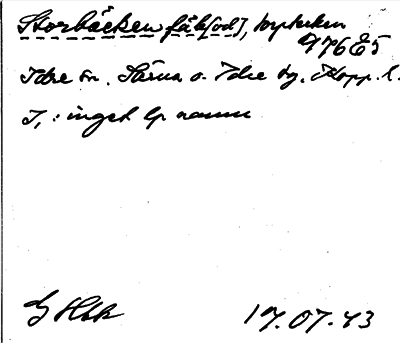 Storbäcken fäb[od], torpruken
976 E5
Idre sn. Särna o. Idre tg. Kopp. l.
J, : inget lp namn
G Hbk
17.07.43